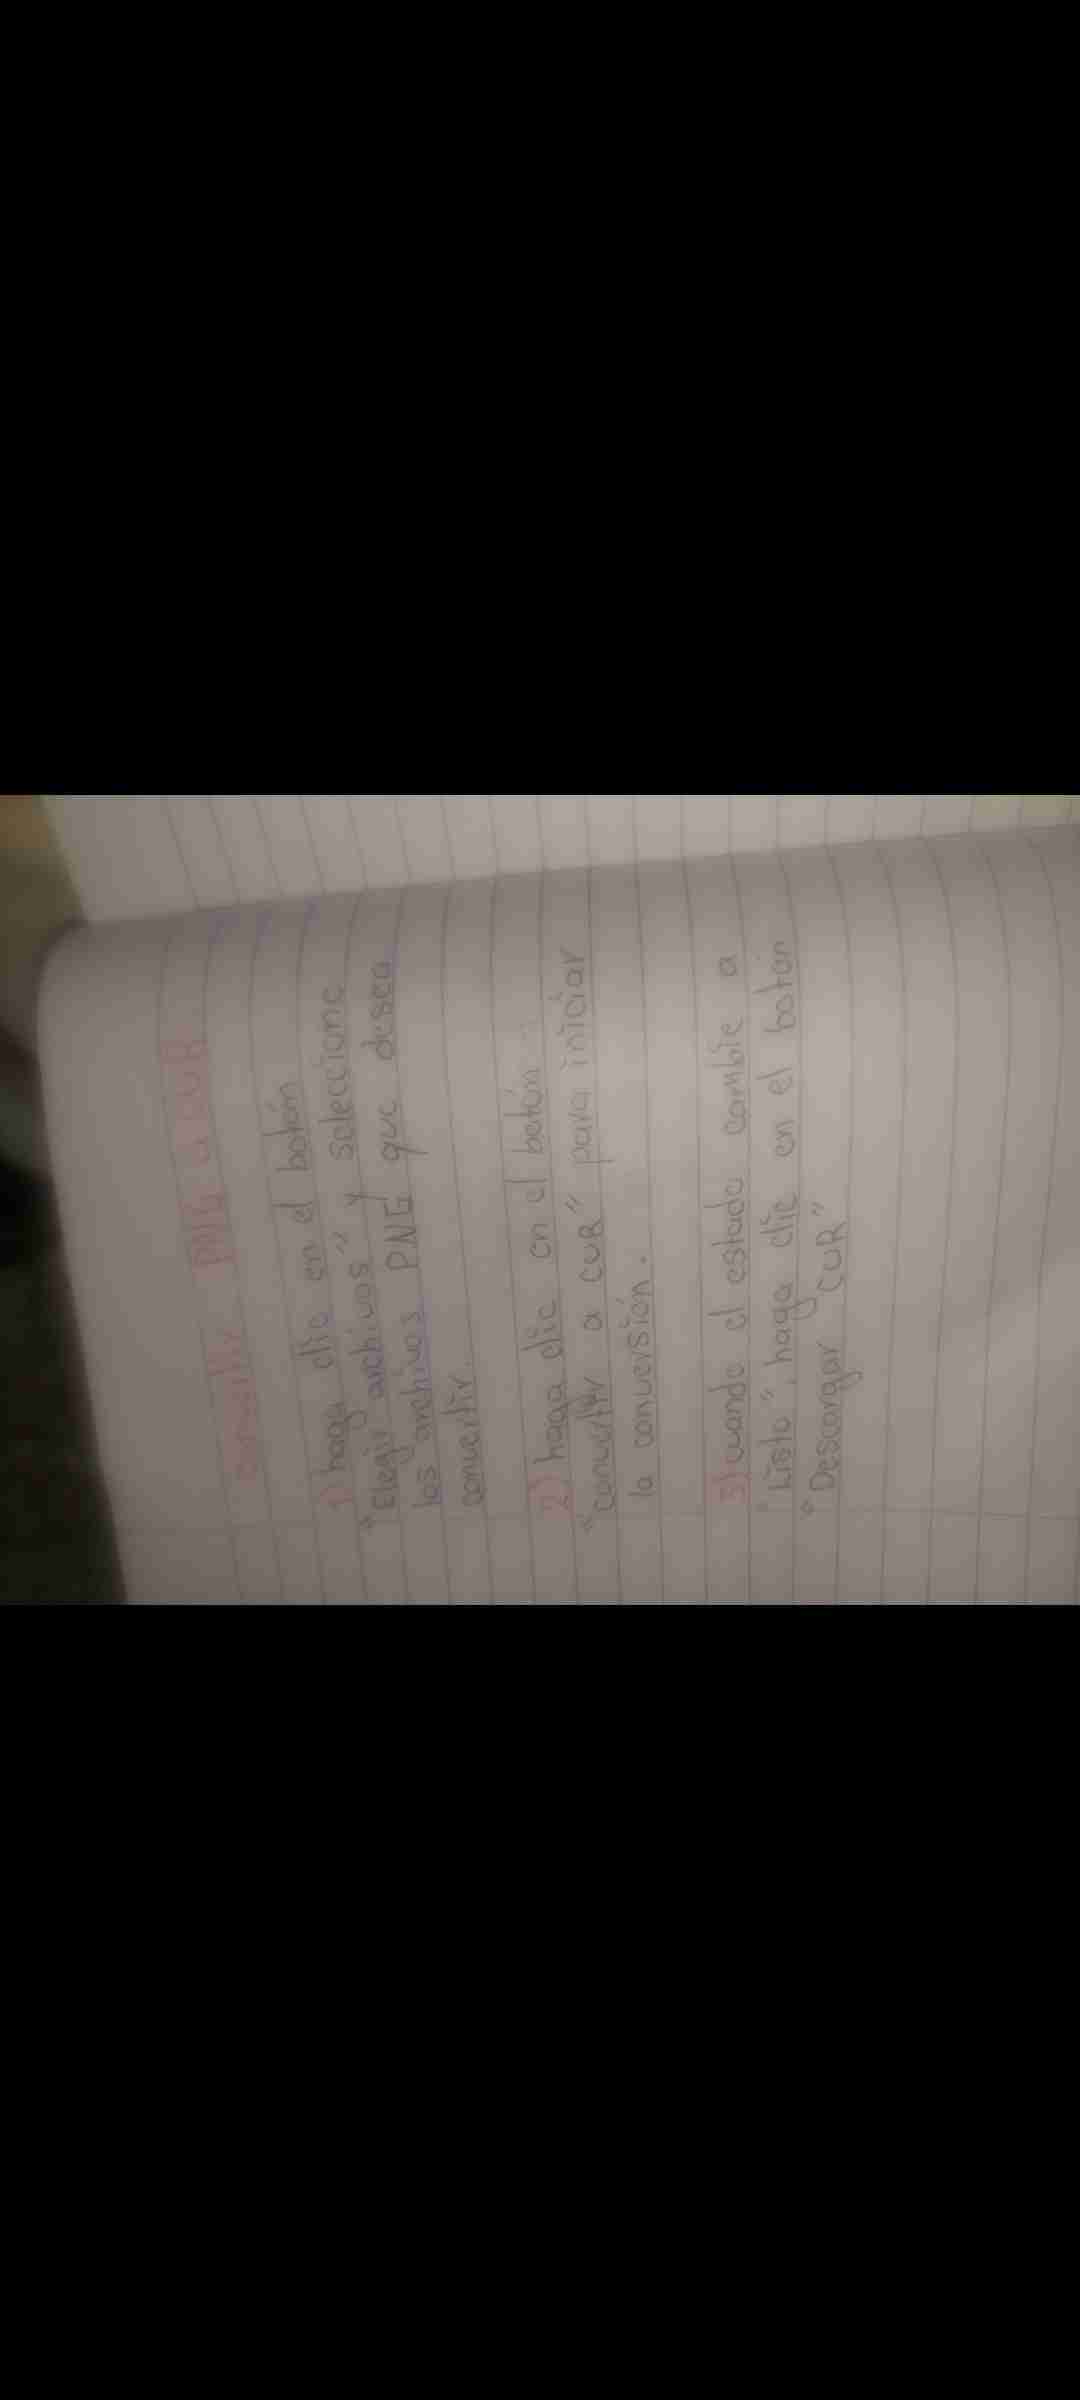 convertir PNG a CUR
1) haga clic en el botón
"Elegir archivos" y seleccione
los archivos PNG que desea
convertir.
2) haga clic en el botón
"convertir a CUR" para iniciar
la conversión.
3) cuando el estado cambie a
"Listo", haga clic en el botón
"Descargar CUR"